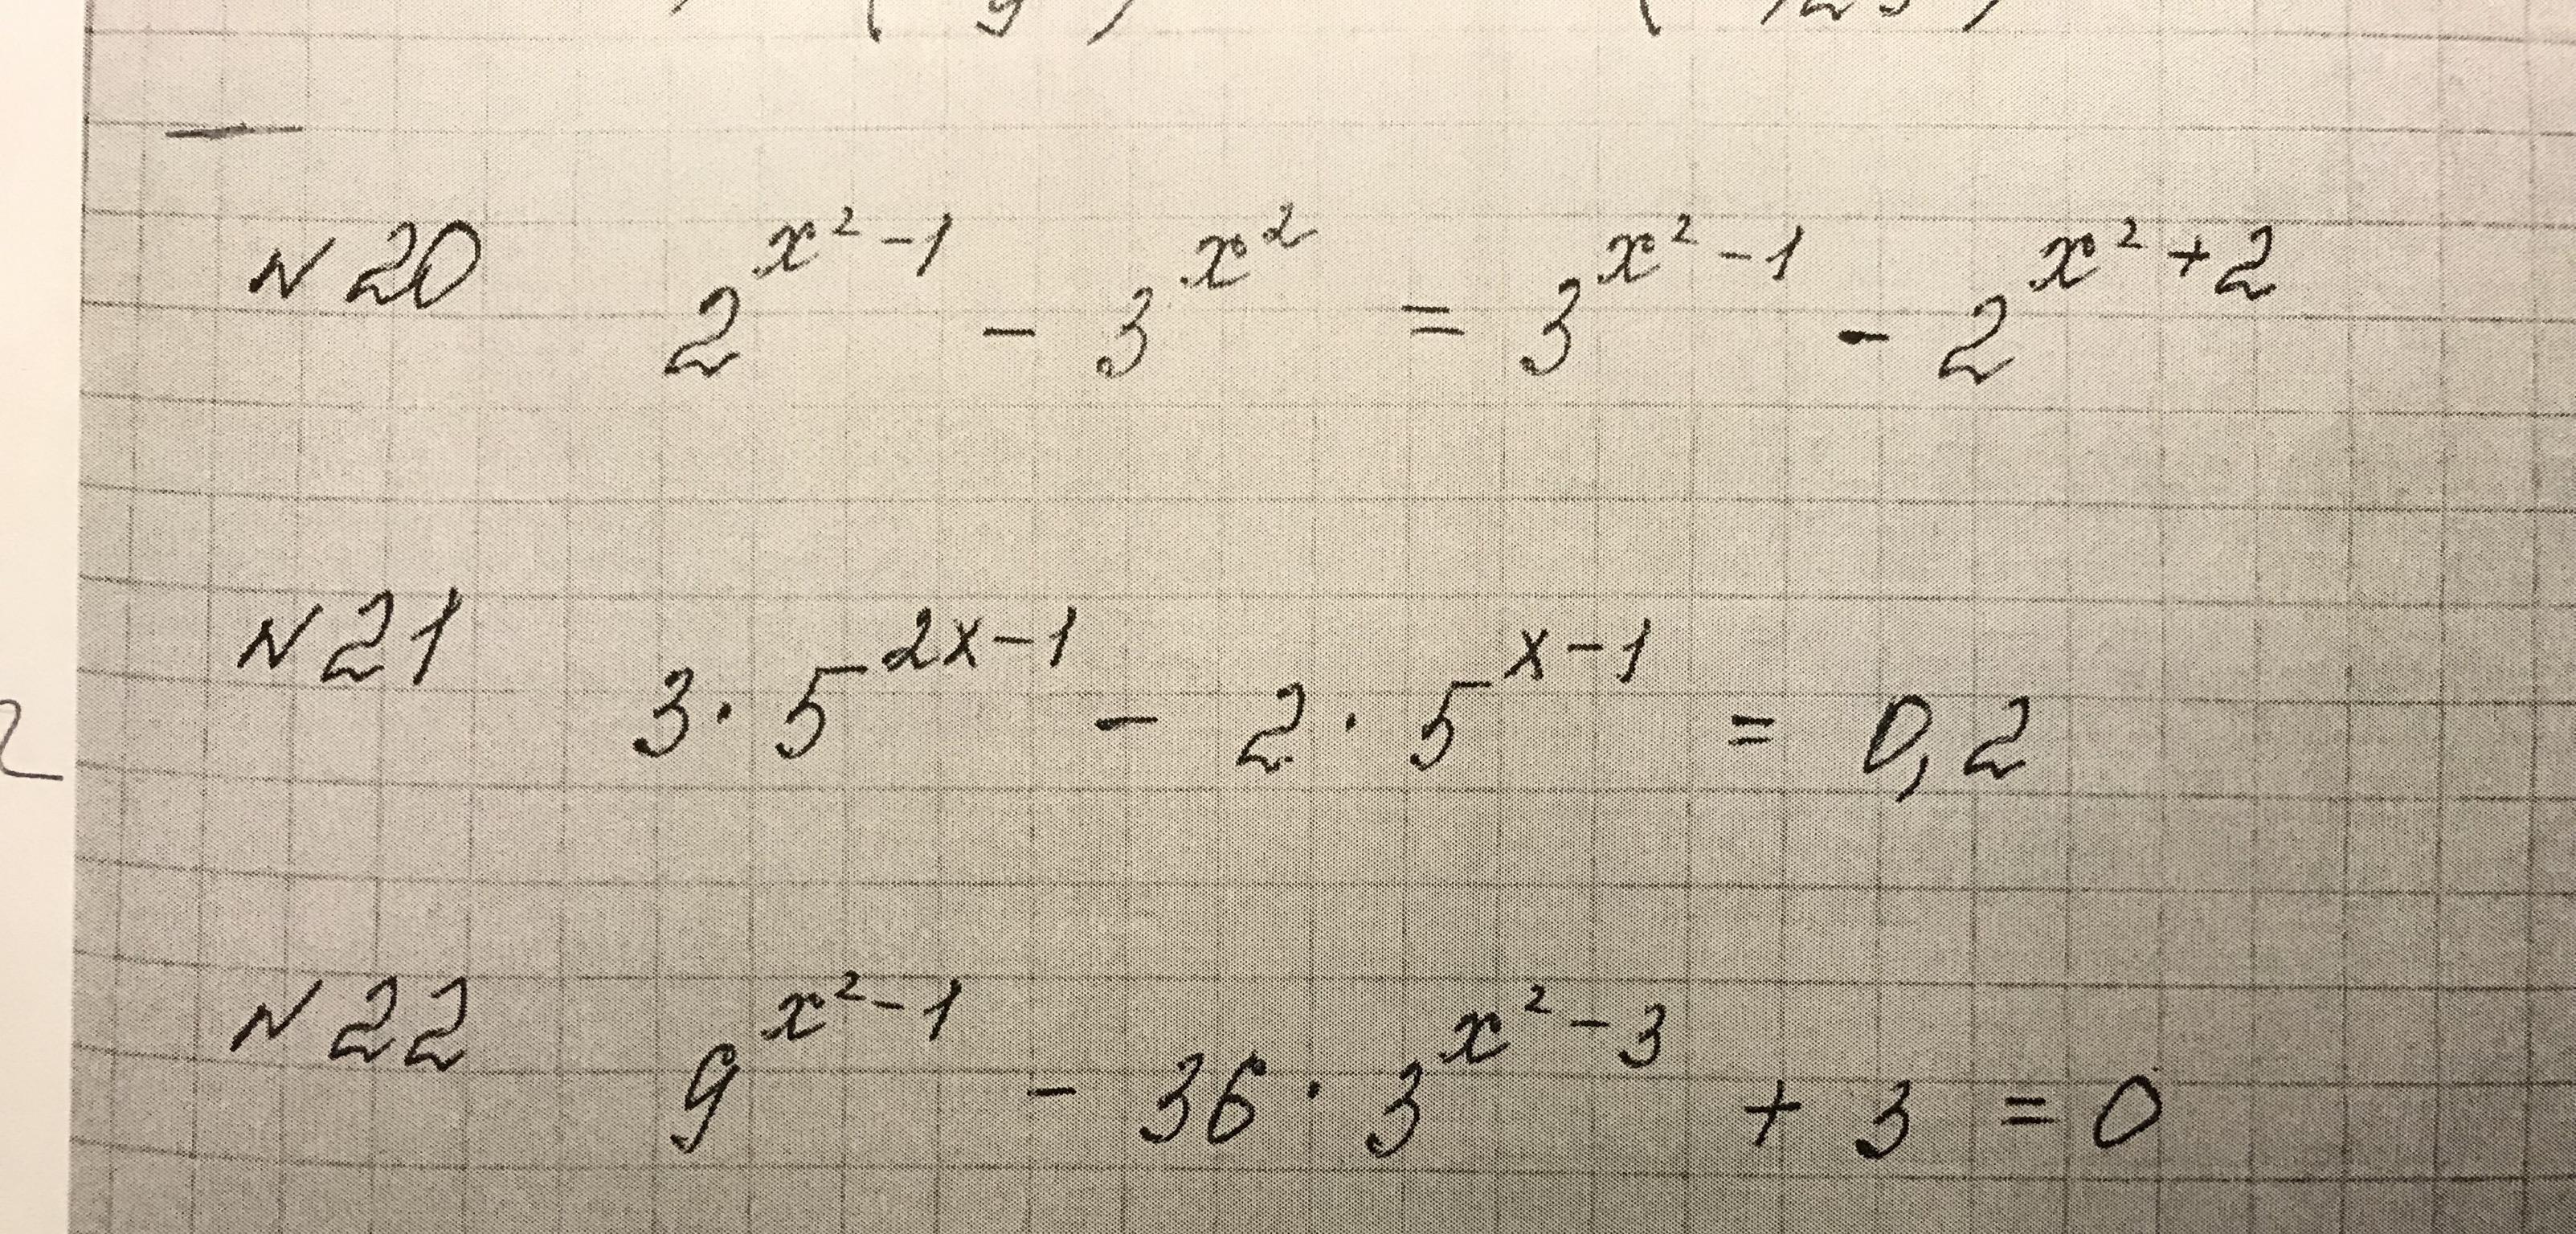 N 20 2^{x^2-1} - 3^{x^2} = 3^{x^2-1} - 2^{x^2+2}
N 21 3 · 5^{2x-1} - 2 · 5^{x-1} = 0,2
N 22 9^{x^2-1} - 36 · 3^{x^2-3} + 3 = 0